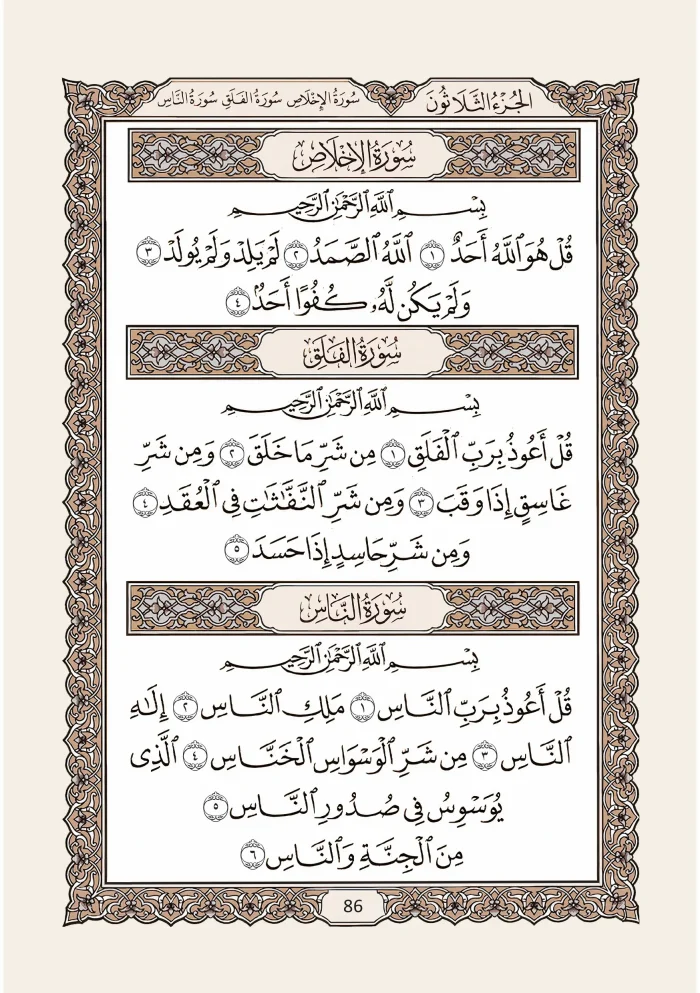 الجُزءُ الثَّلَاثُونَ
سُورَةُ الإِخْلَاصِ سُورَةُ الفَلَقِ سُورَةُ النَّاسِ
سُورَةُ الإِخْلَاصِ
بِسْمِ ٱللَّهِ ٱلرَّحْمَٰنِ ٱلرَّحِيمِ
قُلْ هُوَ ٱللَّهُ أَحَدٌ ١ ٱللَّهُ ٱلصَّمَدُ ٢ لَمْ يَلِدْ وَلَمْ يُولَدْ ٣
وَلَمْ يَكُن لَّهُۥ كُفُوًا أَحَدٌۢ ٤
سُورَةُ الفَلَقِ
بِسْمِ ٱللَّهِ ٱلرَّحْمَٰنِ ٱلرَّحِيمِ
قُلْ أَعُوذُ بِرَبِّ ٱلْفَلَقِ ١ مِن شَرِّ مَا خَلَقَ ٢ وَمِن شَرِّ
غَاسِقٍ إِذَا وَقَبَ ٣ وَمِن شَرِّ ٱلنَّفَّٰثَٰتِ فِى ٱلْعُقَدِ ٤
وَمِن شَرِّ حَاسِدٍ إِذَا حَسَدَ ٥
سُورَةُ النَّاسِ
بِسْمِ ٱللَّهِ ٱلرَّحْمَٰنِ ٱلرَّحِيمِ
قُلْ أَعُوذُ بِرَبِّ ٱلنَّاسِ ١ مَلِكِ ٱلنَّاسِ ٢ إِلَٰهِ
ٱلنَّاسِ ٣ مِن شَرِّ ٱلْوَسْوَاسِ ٱلْخَنَّاسِ ٤ ٱلَّذِى
يُوَسْوِسُ فِى صُدُورِ ٱلنَّاسِ ٥
مِنَ ٱلْجِنَّةِ وَٱلنَّاسِ ٦
86